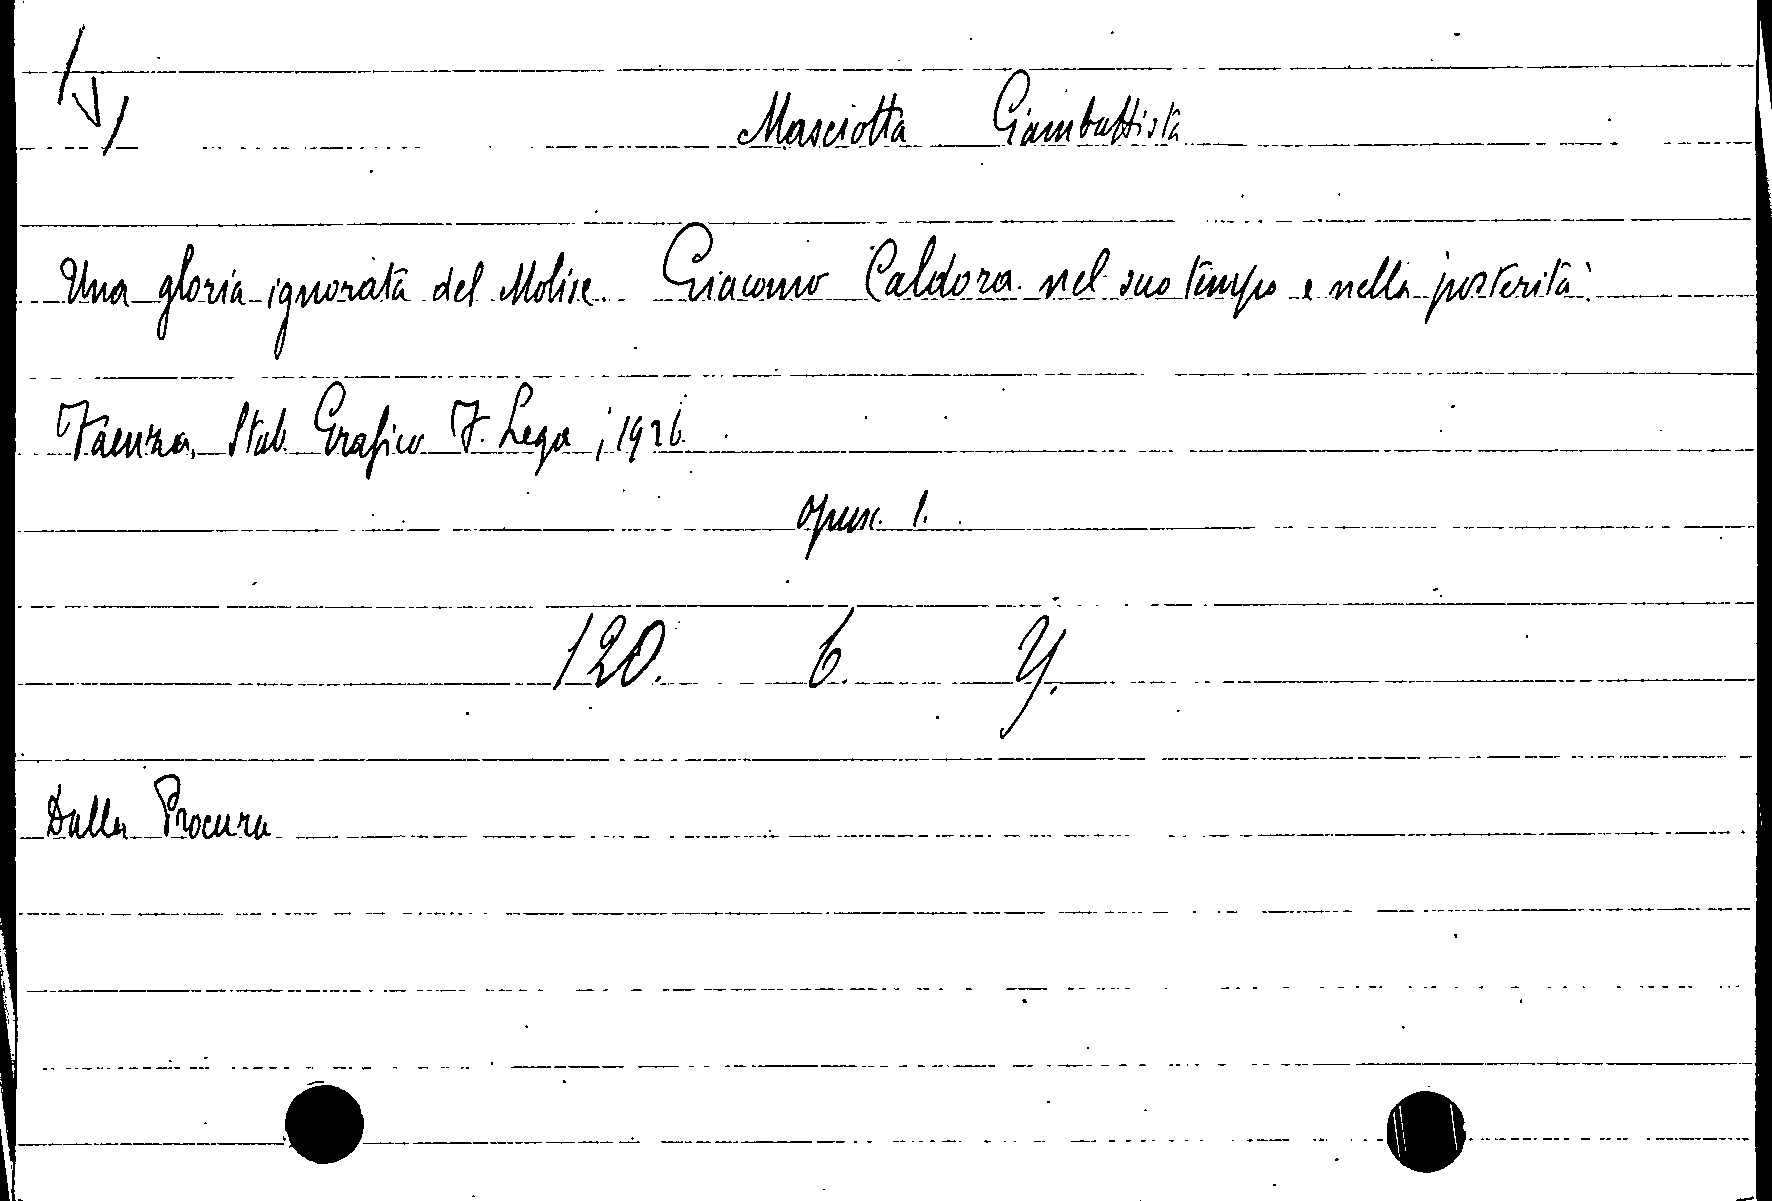 Masciotta Giambattista
Una gloria ignorata del Molise. Giacomo Caldora nel suo tempo e nella posterità.
Faenza, Stab. Grafico F. Lega, 1926.
opusc. 1.
120. 6. Y.
Dalla Procura